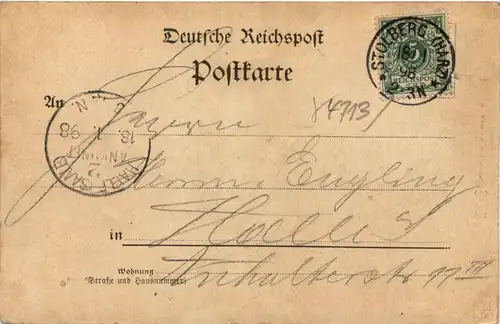 Deutsche Reichspost
Postkarte
STOLBERG (HARZ)
5
REICHSPOST
4713
An
Herrn
Hermann Engling
in Halle
Wohnung
(Straße und Hausnummer)
Anhalterstr. 11 III
18. 1. 98
HALLE (SAALE)
2